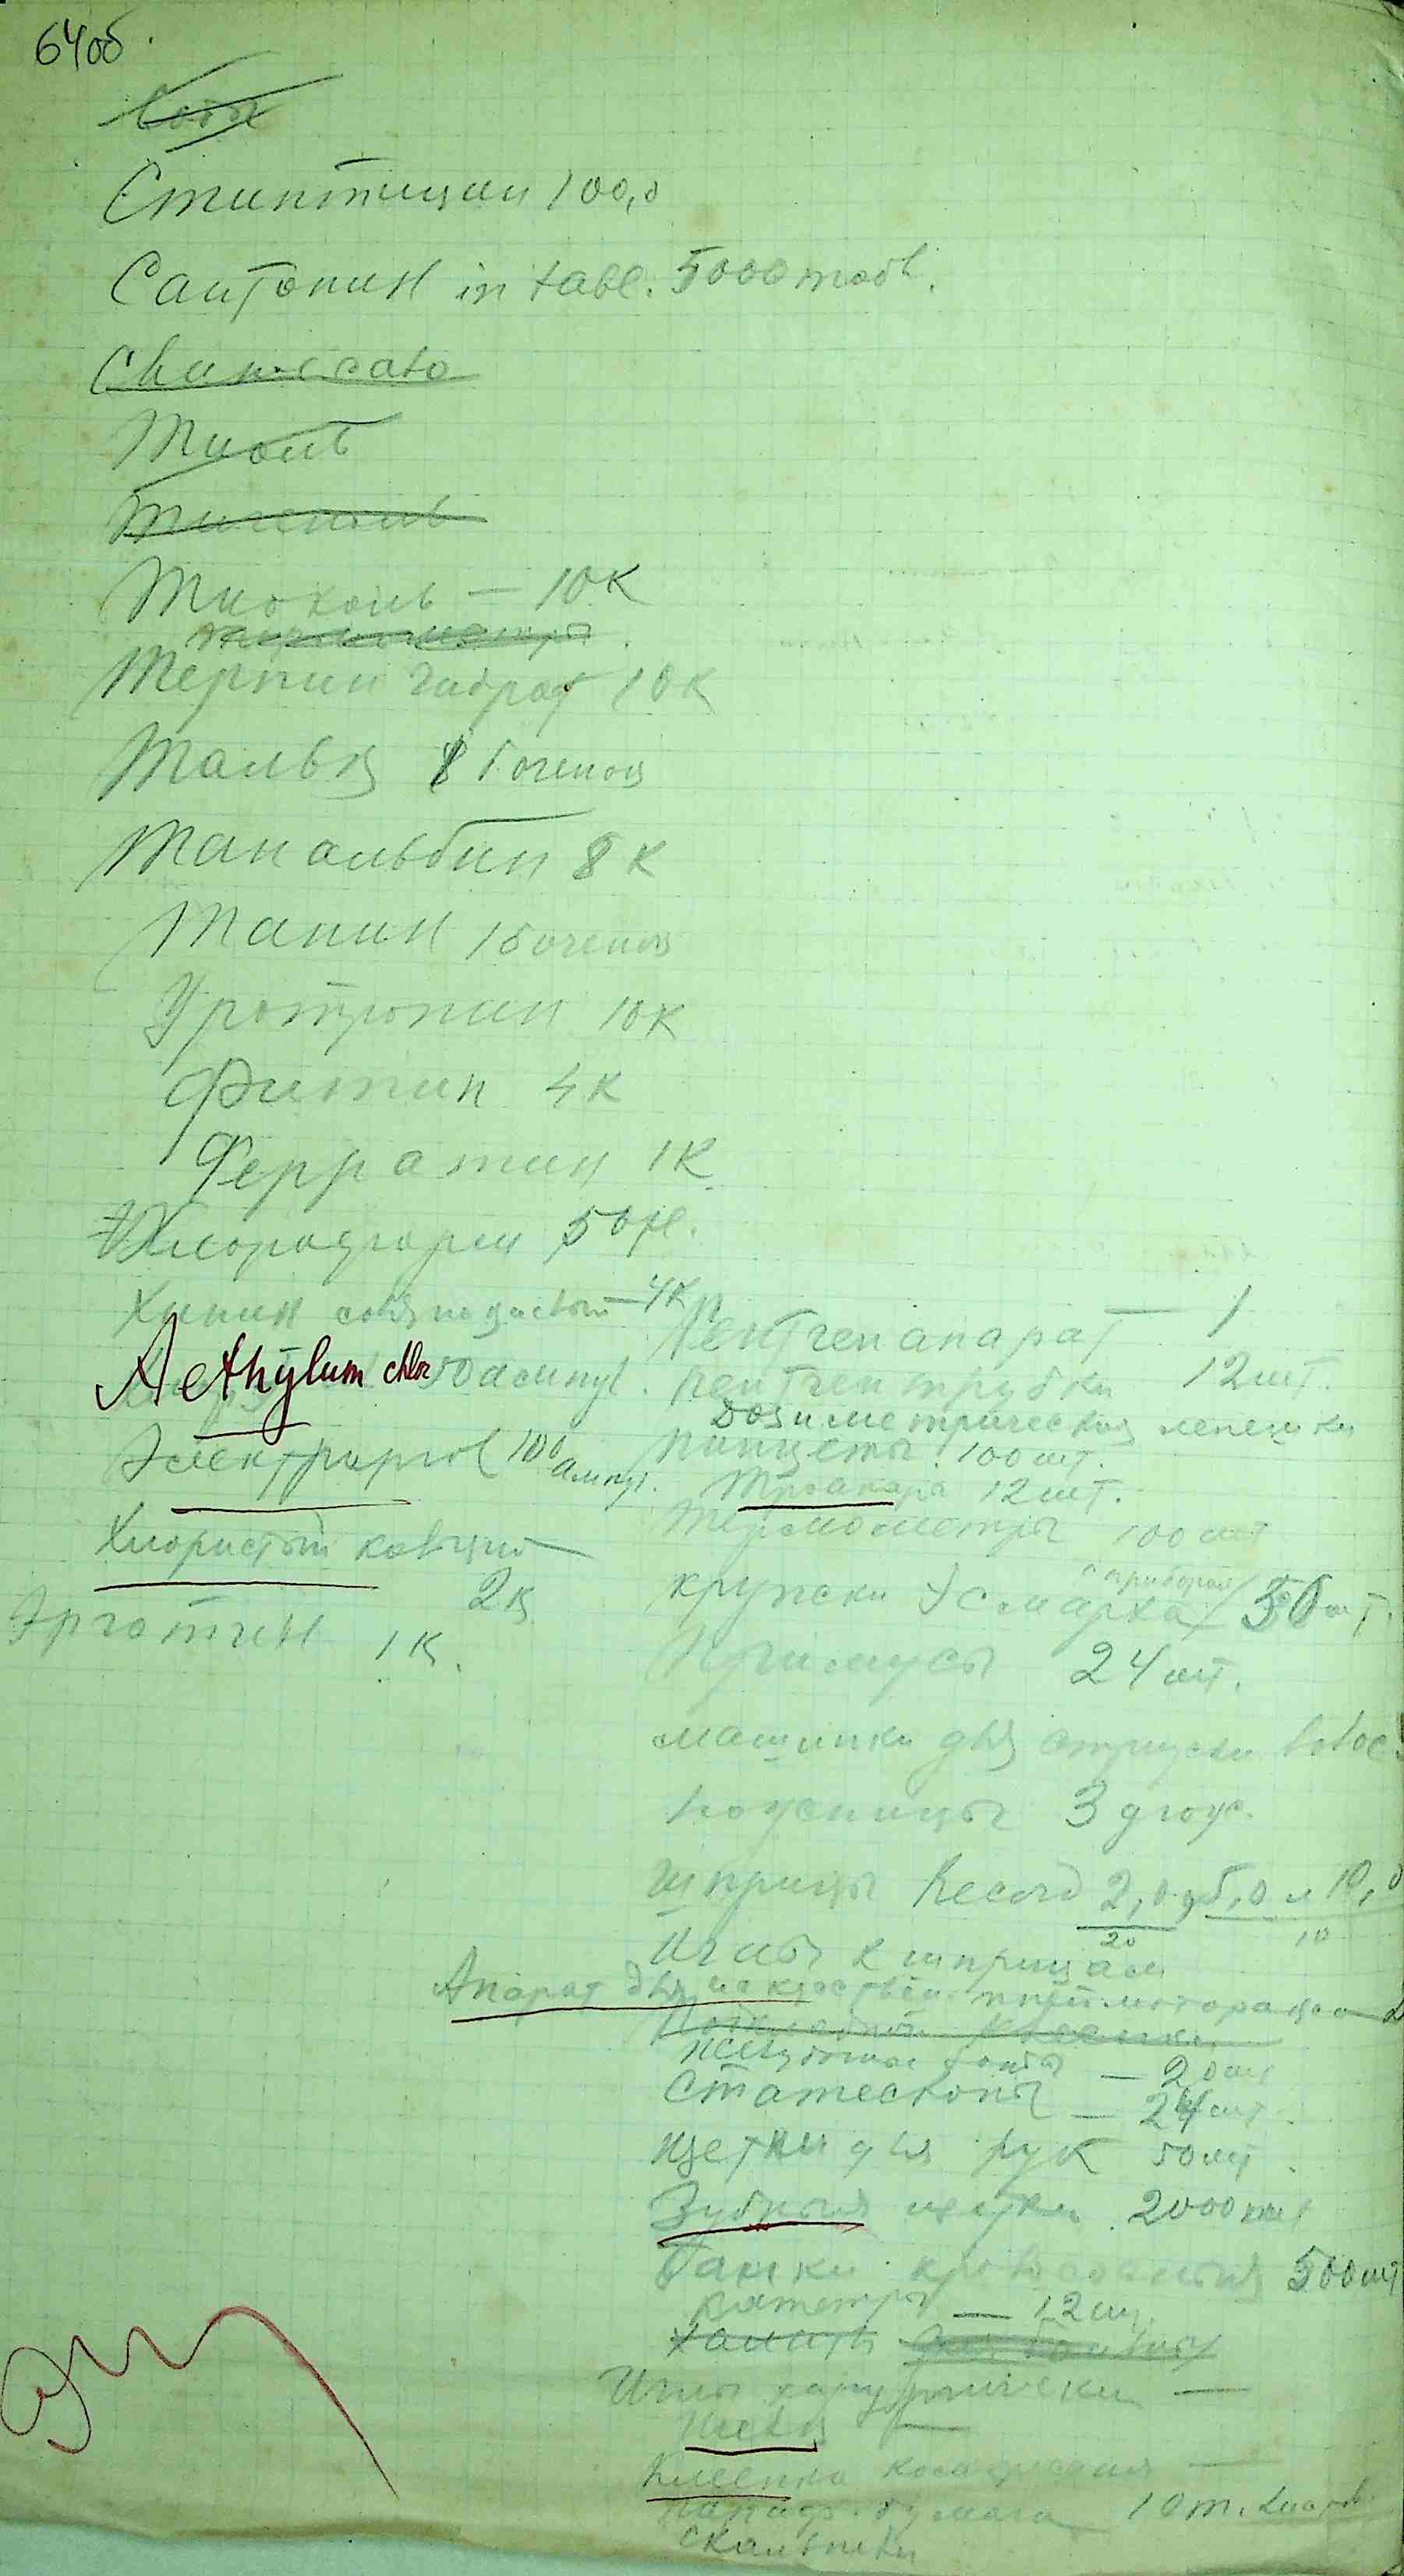 64об.
Стиптицин 100,0
Сантонин in tabl. 5000 табл.
Тиоль
Тиоколь — 10К
Терпин гидрат 10К
Тальк 8 боченок
Танальбин 8 К
Танин 1 боченок
Уротропин 10К
Фитин 4К
Ферратин 1К
Хлороформ 50 fl.
Хинин солянокислый — 4К
Aethylum chlor 50 ампул.
Электраргол 100 ампул.
Хлористый кальций
2к
Эрготин 1К.
Рентген апарат — 1
рентген трубки 12 шт.
Дозиметрическия лепешки
Пинцеты 100 шт.
Троакары 12 шт.
Термометры 100 шт
с прибором
кружки Эсмарха 50 шт.
Примусы 24 шт.
машинки для стрижки волос
ножницы 3 дюж.
Шприцы Record 2,0, 5,0 и 10,0
20 10
Иглы к шприцам
Апарат для искусствен. пнеймоторакса
Желудочные зонды — 20 шт
Статескопы — 24 шт.
Щетки для рук 50 шт.
Зубныя щетки 2000 шт
Банки кровососныя 500 шт
Катетры — 12 шт.
Иглы хирургически —
Шелк —
Клеенка компресная —
бумага 10 т. листов
скальпели